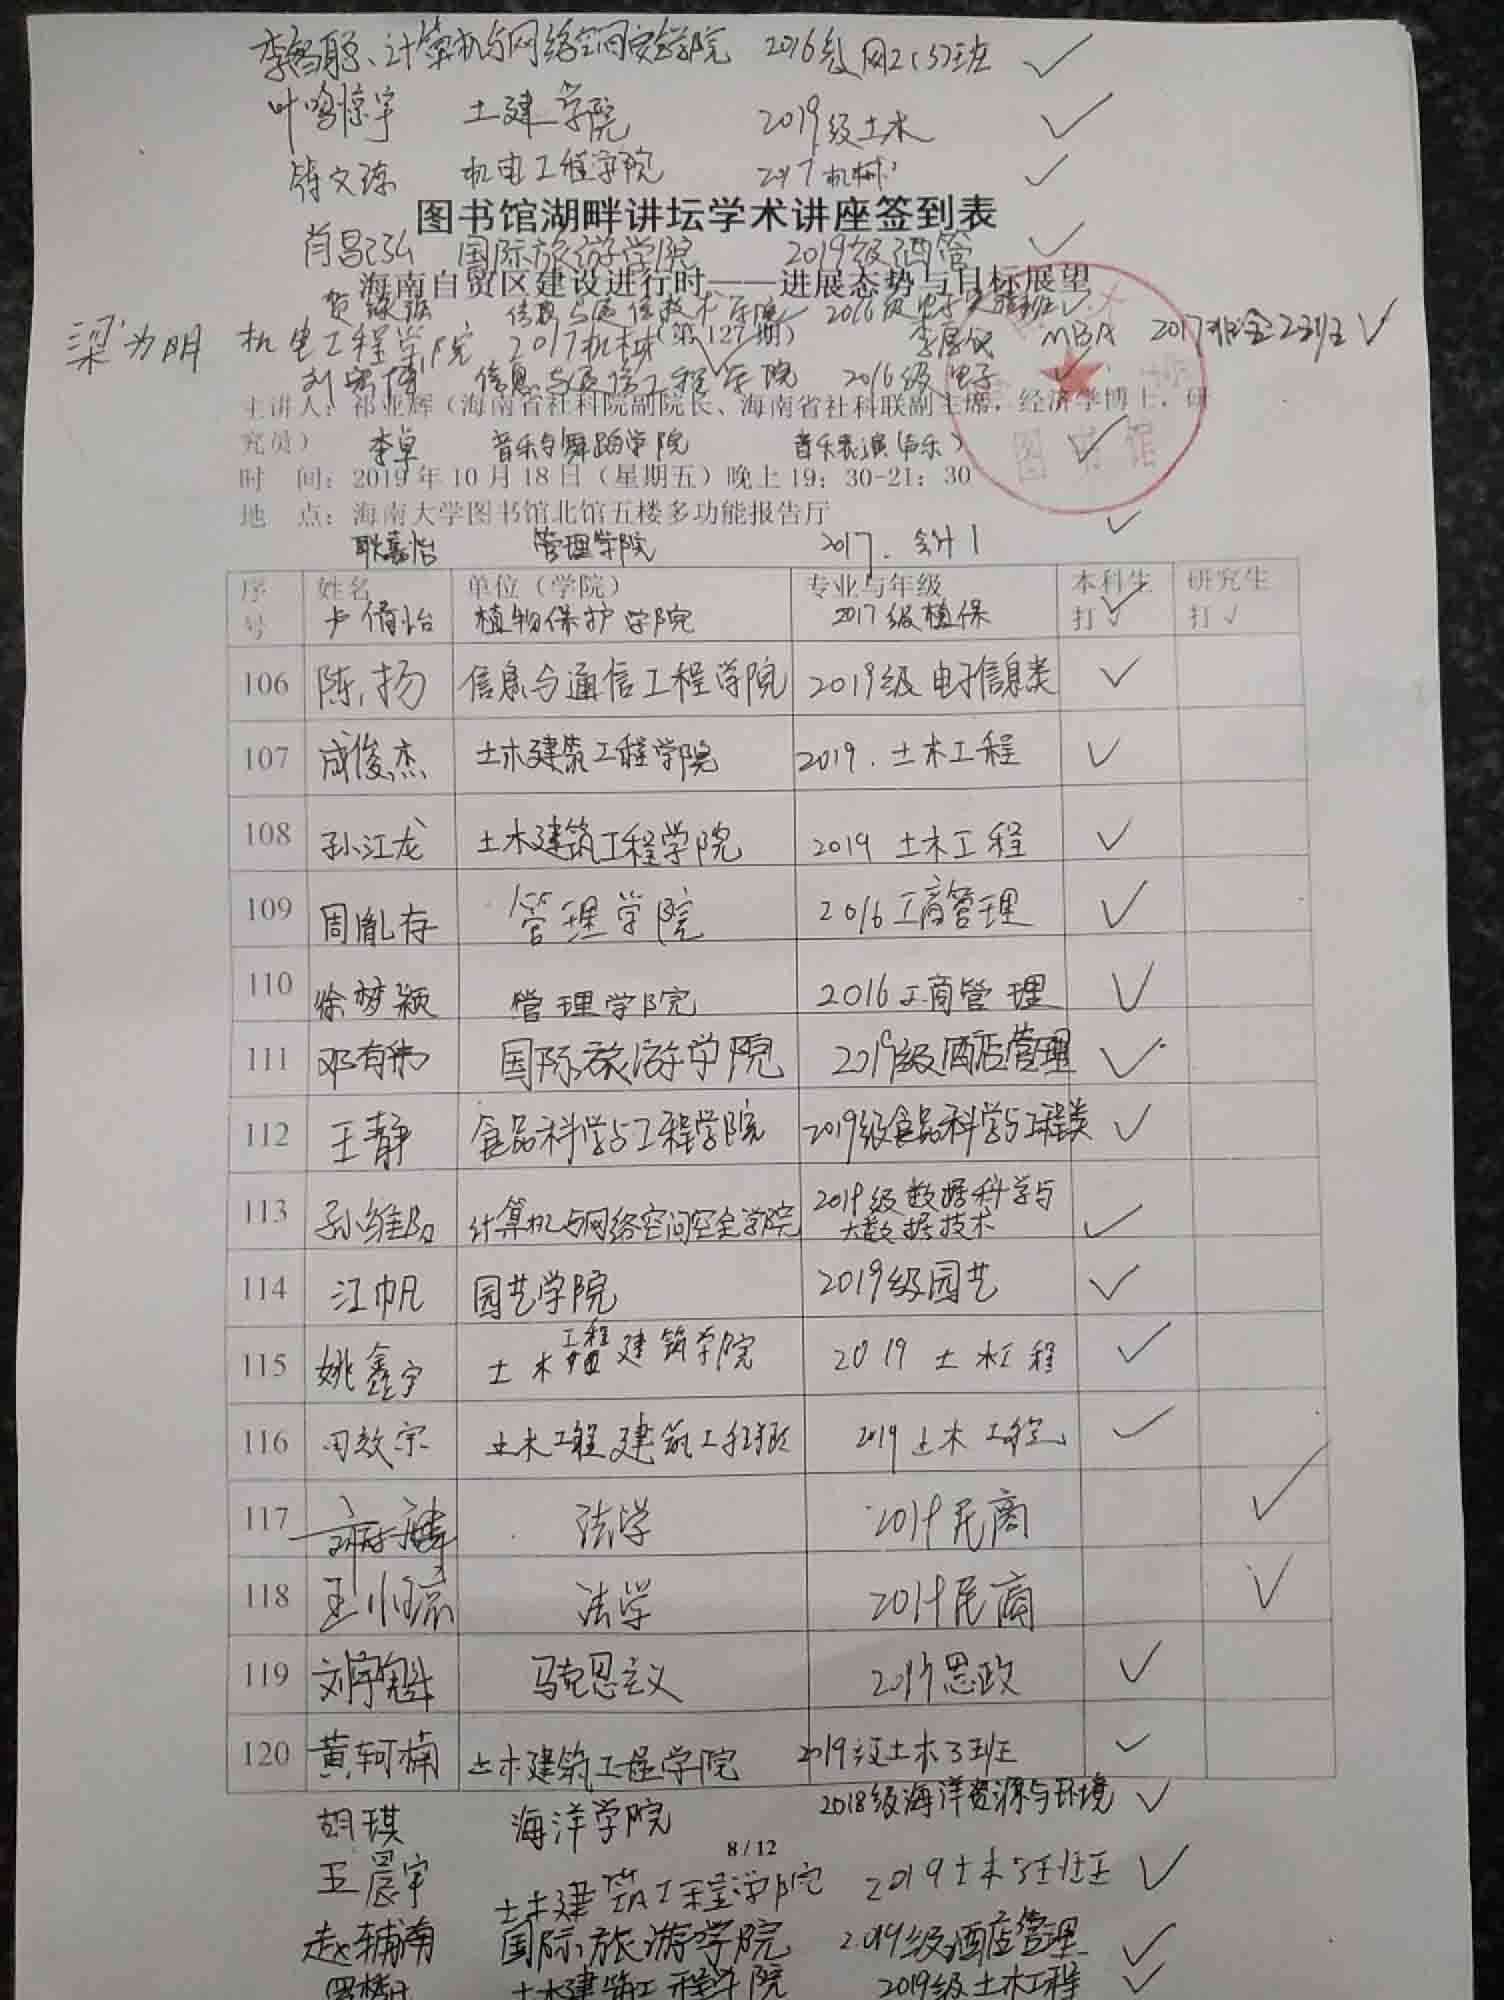 李智聪、计算机与网络空间安全学院 2016级网工(3)班 ✓
叶鸣惊宇 土建学院 2019级土木 ✓
符文琼 机电工程学院 2017机械 ✓
图书馆湖畔讲坛学术讲座签到表
肖昌弘 国际旅游学院 2019级酒管 ✓
海南自贸区建设进行时——进展态势与目标展望
信息与通信技术学院 2016级电子实验班 ✓
梁为明 机电工程学院 2017机械 ✓ (第127期) MBA 2017 ✓
信息与通信工程学院 2016级电子 ✓
主讲人：祁亚辉（海南省社科院副院长、海南省社科联副主席，经济学博士，研
究员）
李卓 音乐与舞蹈学院 音乐表演(声乐) ✓
图书馆
时 间：2019年10月18日（星期五）晚上19：30-21：30
地 点：海南大学图书馆北馆五楼多功能报告厅
耿嘉怡 管理学院 2017.会计1 ✓
序号 姓名 单位（学院） 专业与年级 本科生打✓ 研究生打✓
卢倩怡 植物保护学院 2017级植保 ✓
106 陈扬 信息与通信工程学院 2019级电子信息类 ✓
107 成俊杰 土木建筑工程学院 2019.土木工程 ✓
108 孙江龙 土木建筑工程学院 2019 土木工程 ✓
109 周胤存 管理学院 2016工商管理 ✓
110 徐梦颖 管理学院 2016工商管理 ✓
111 邓有伟 国际旅游学院 2019级酒店管理 ✓
112 王静 食品科学与工程学院 2019级食品科学与工程类 ✓
113 孙维阳 计算机与网络空间安全学院 2019级数据科学与大数据技术 ✓
114 江帆 园艺学院 2019级园艺 ✓
115 姚鑫宇 土木工程建筑学院 2019 土木工程 ✓
116 田效宗 土木工程建筑工程学院 2019 土木工程 ✓
117 法学 2019民商 ✓
118 法学 2019民商 ✓
119 刘宇魁 马克思主义 2019思政 ✓
120 黄轲楠 土木建筑工程学院 2019级土木3班 ✓
胡琪 海洋学院 2018级海洋资源与环境 ✓
8 / 12
王晨宇 土木建筑工程学院 2019土木3班 ✓
赵辅南 国际旅游学院 2019级酒店管理 ✓
土木建筑工程学院 2019级土木工程 ✓